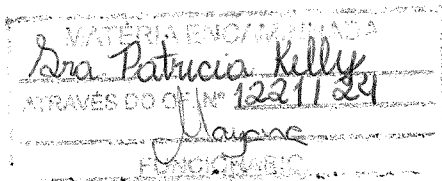 MATÉRIA ENCAMINHADA
Sra Patricia Kelly
ATRAVÉS DO OF. Nº 1221/24
Mayane
FUNCIONÁRIO